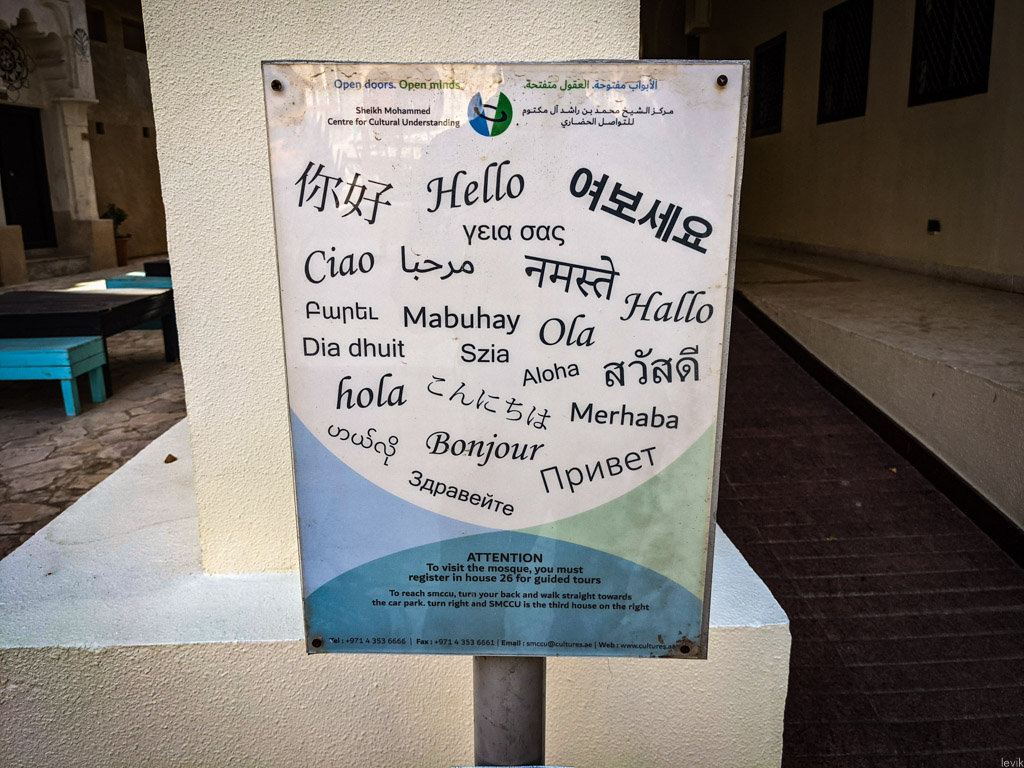 Open doors. Open minds.
الأبواب مفتوحة. العقول متفتحة.
Sheikh Mohammed
Centre for Cultural Understanding
مركز الشيخ محمد بن راشد آل مكتوم
للتواصل الحضاري
你好
Hello
여보세요
γεια σας
Ciao
مرحبا
नमस्ते
Hallo
Բարեւ
Mabuhay
Ola
Dia dhuit
Szia
Aloha
สวัสดี
hola
こんにちは
Merhaba
ဟယ်လို
Bonjour
Привет
Здравейте
ATTENTION
To visit the mosque, you must
register in house 26 for guided tours
To reach smccu, turn your back and walk straight towards
the car park. turn right and SMCCU is the third house on the right
Tel : +971 4 353 6666 | Fax : +971 4 353 6661 | Email : smccu@cultures.ae | Web : www.cultures.ae
levik